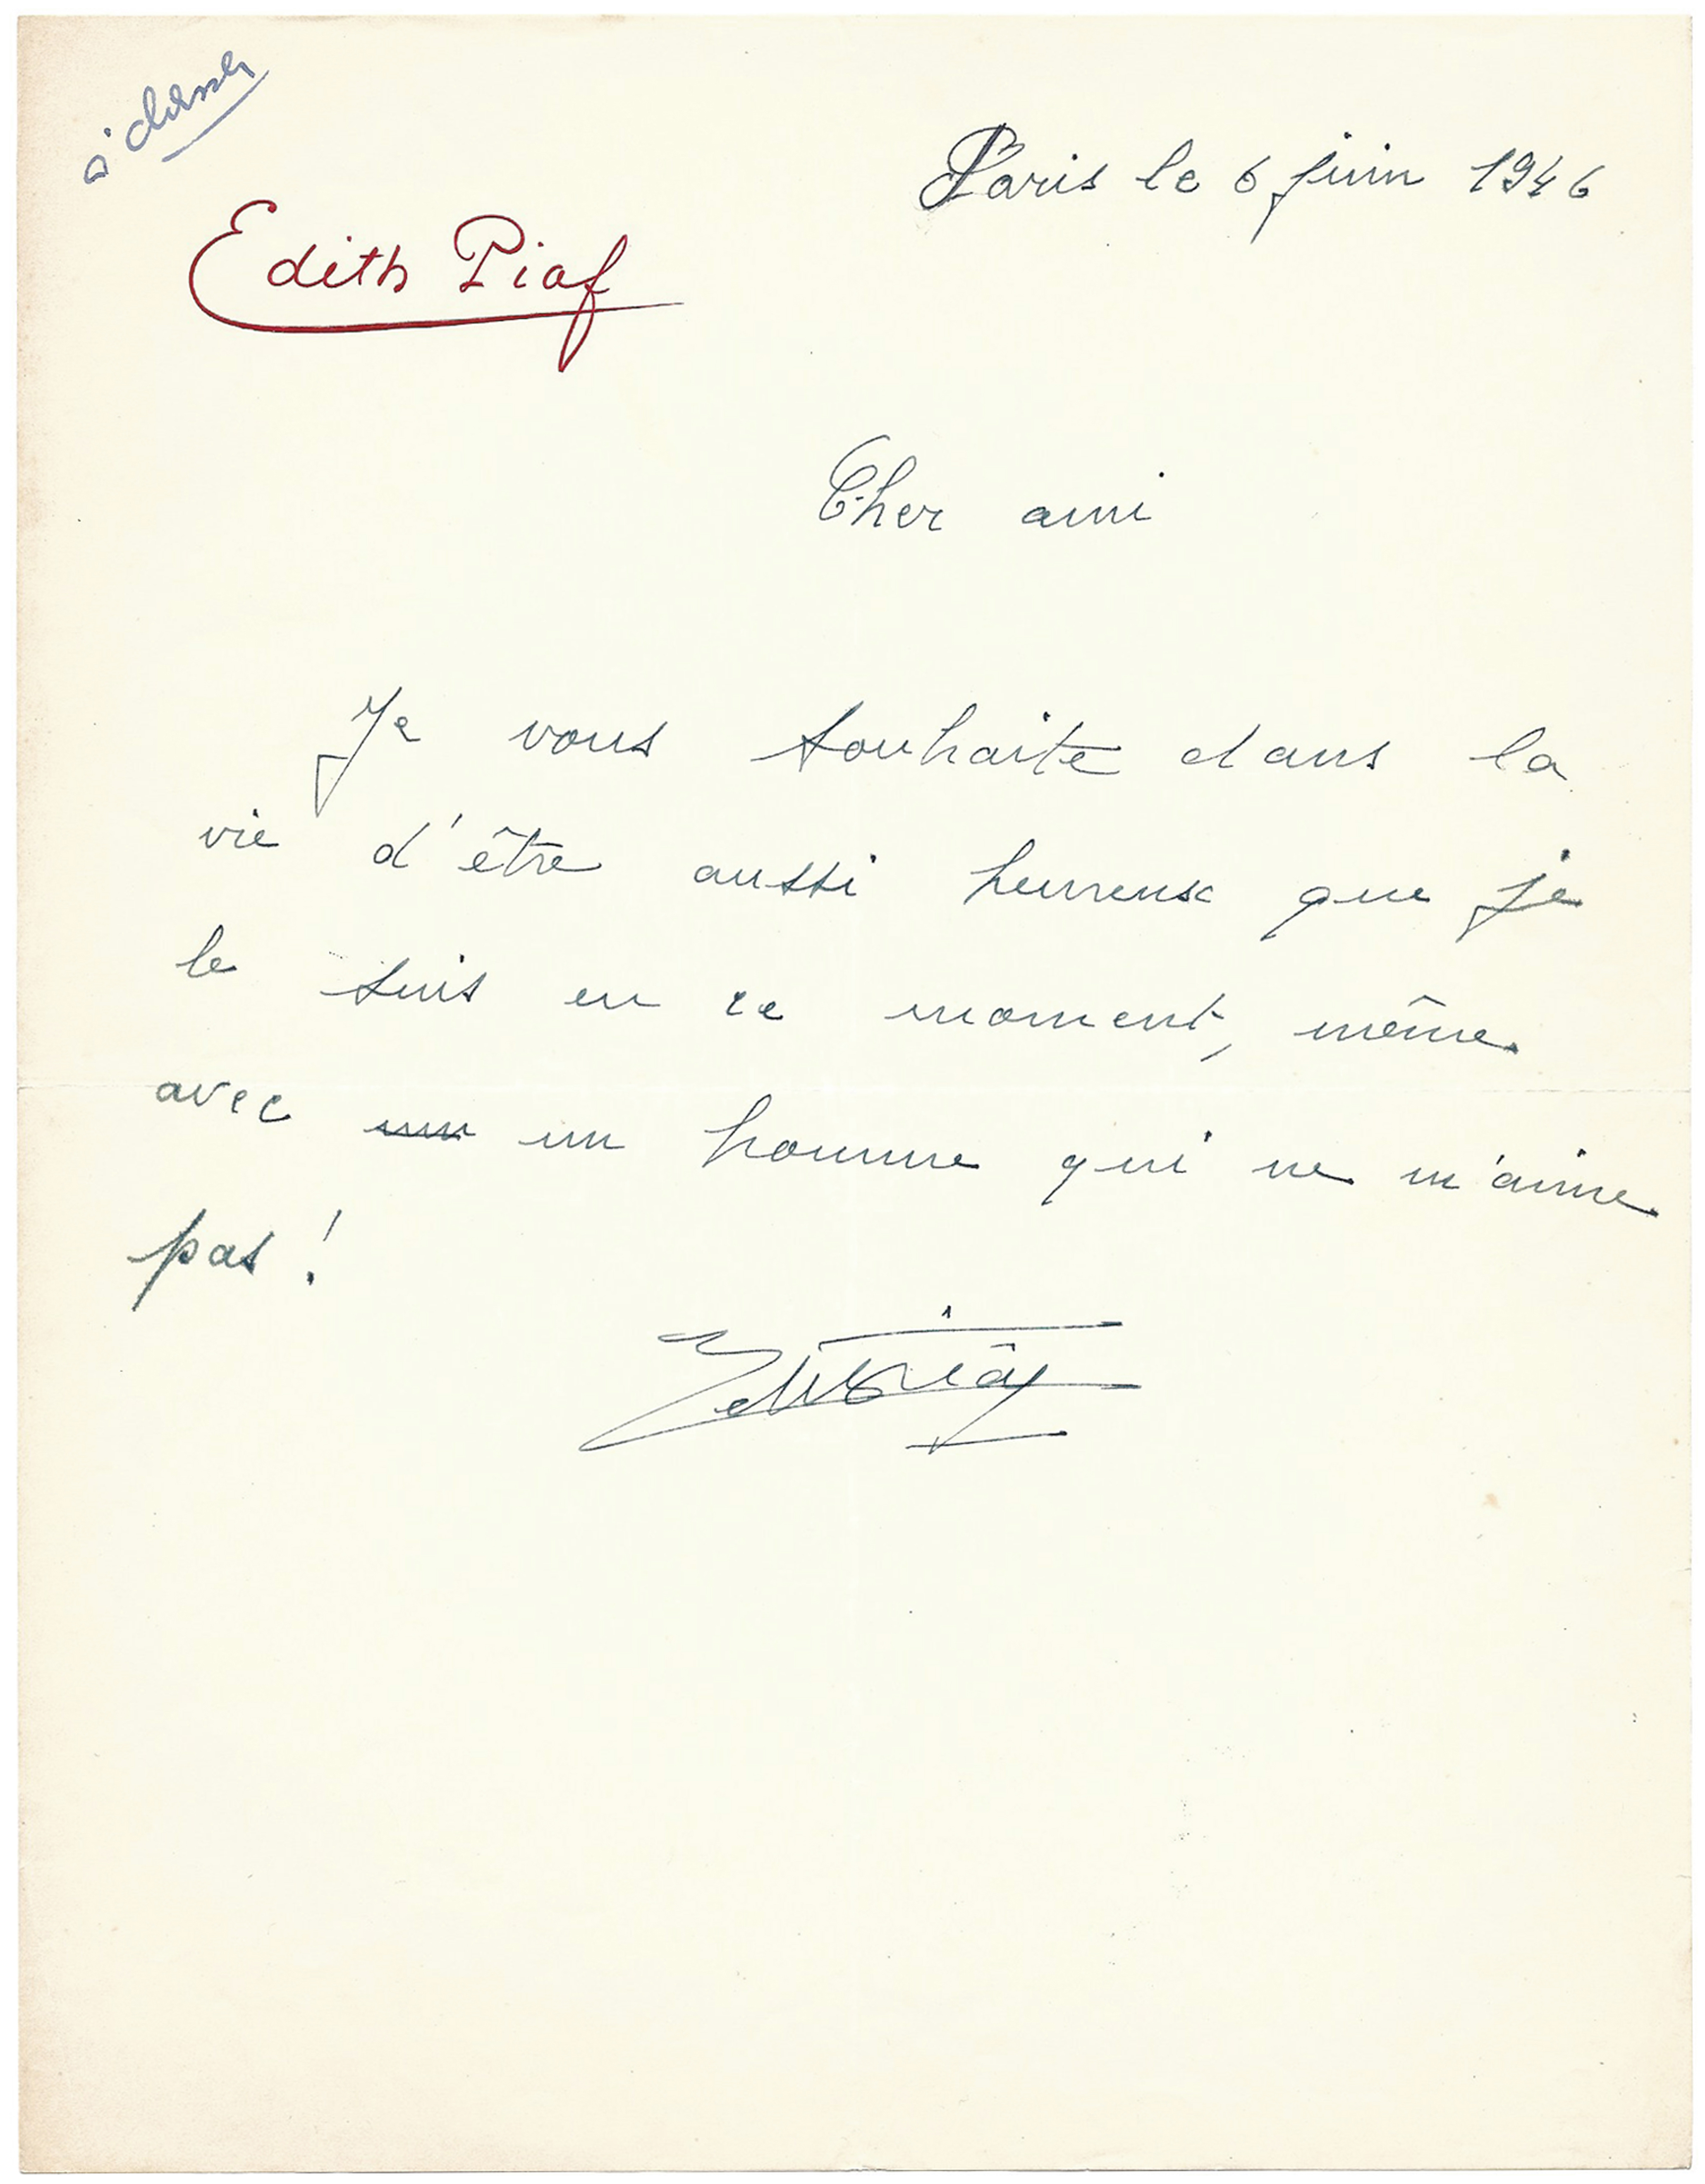 à classer
Paris le 6 juin 1946
Edith Piaf
Cher ami
Je vous souhaite dans la
vie d'être aussi heureux que je
le suis en ce moment, même
avec un un homme qui ne m'aime
pas !
Edith Piaf